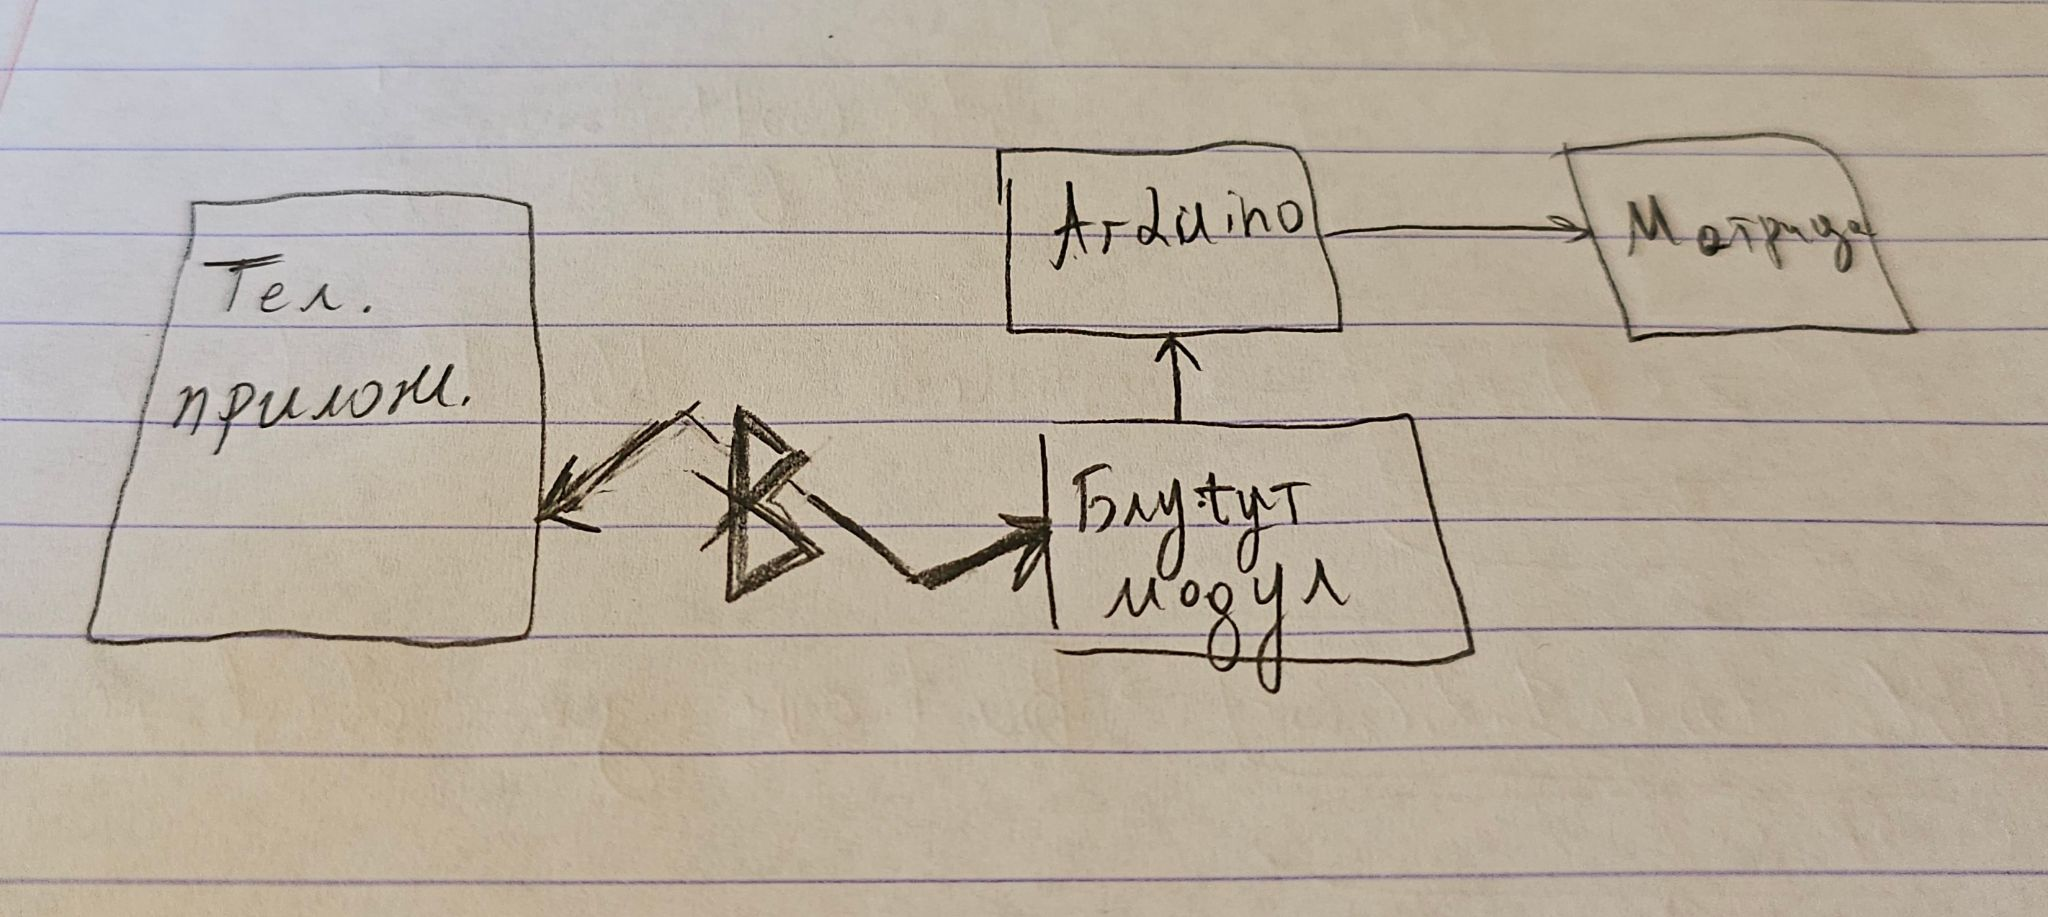 Тел.
прилож.
Arduino
Матрица
Блутут
модул